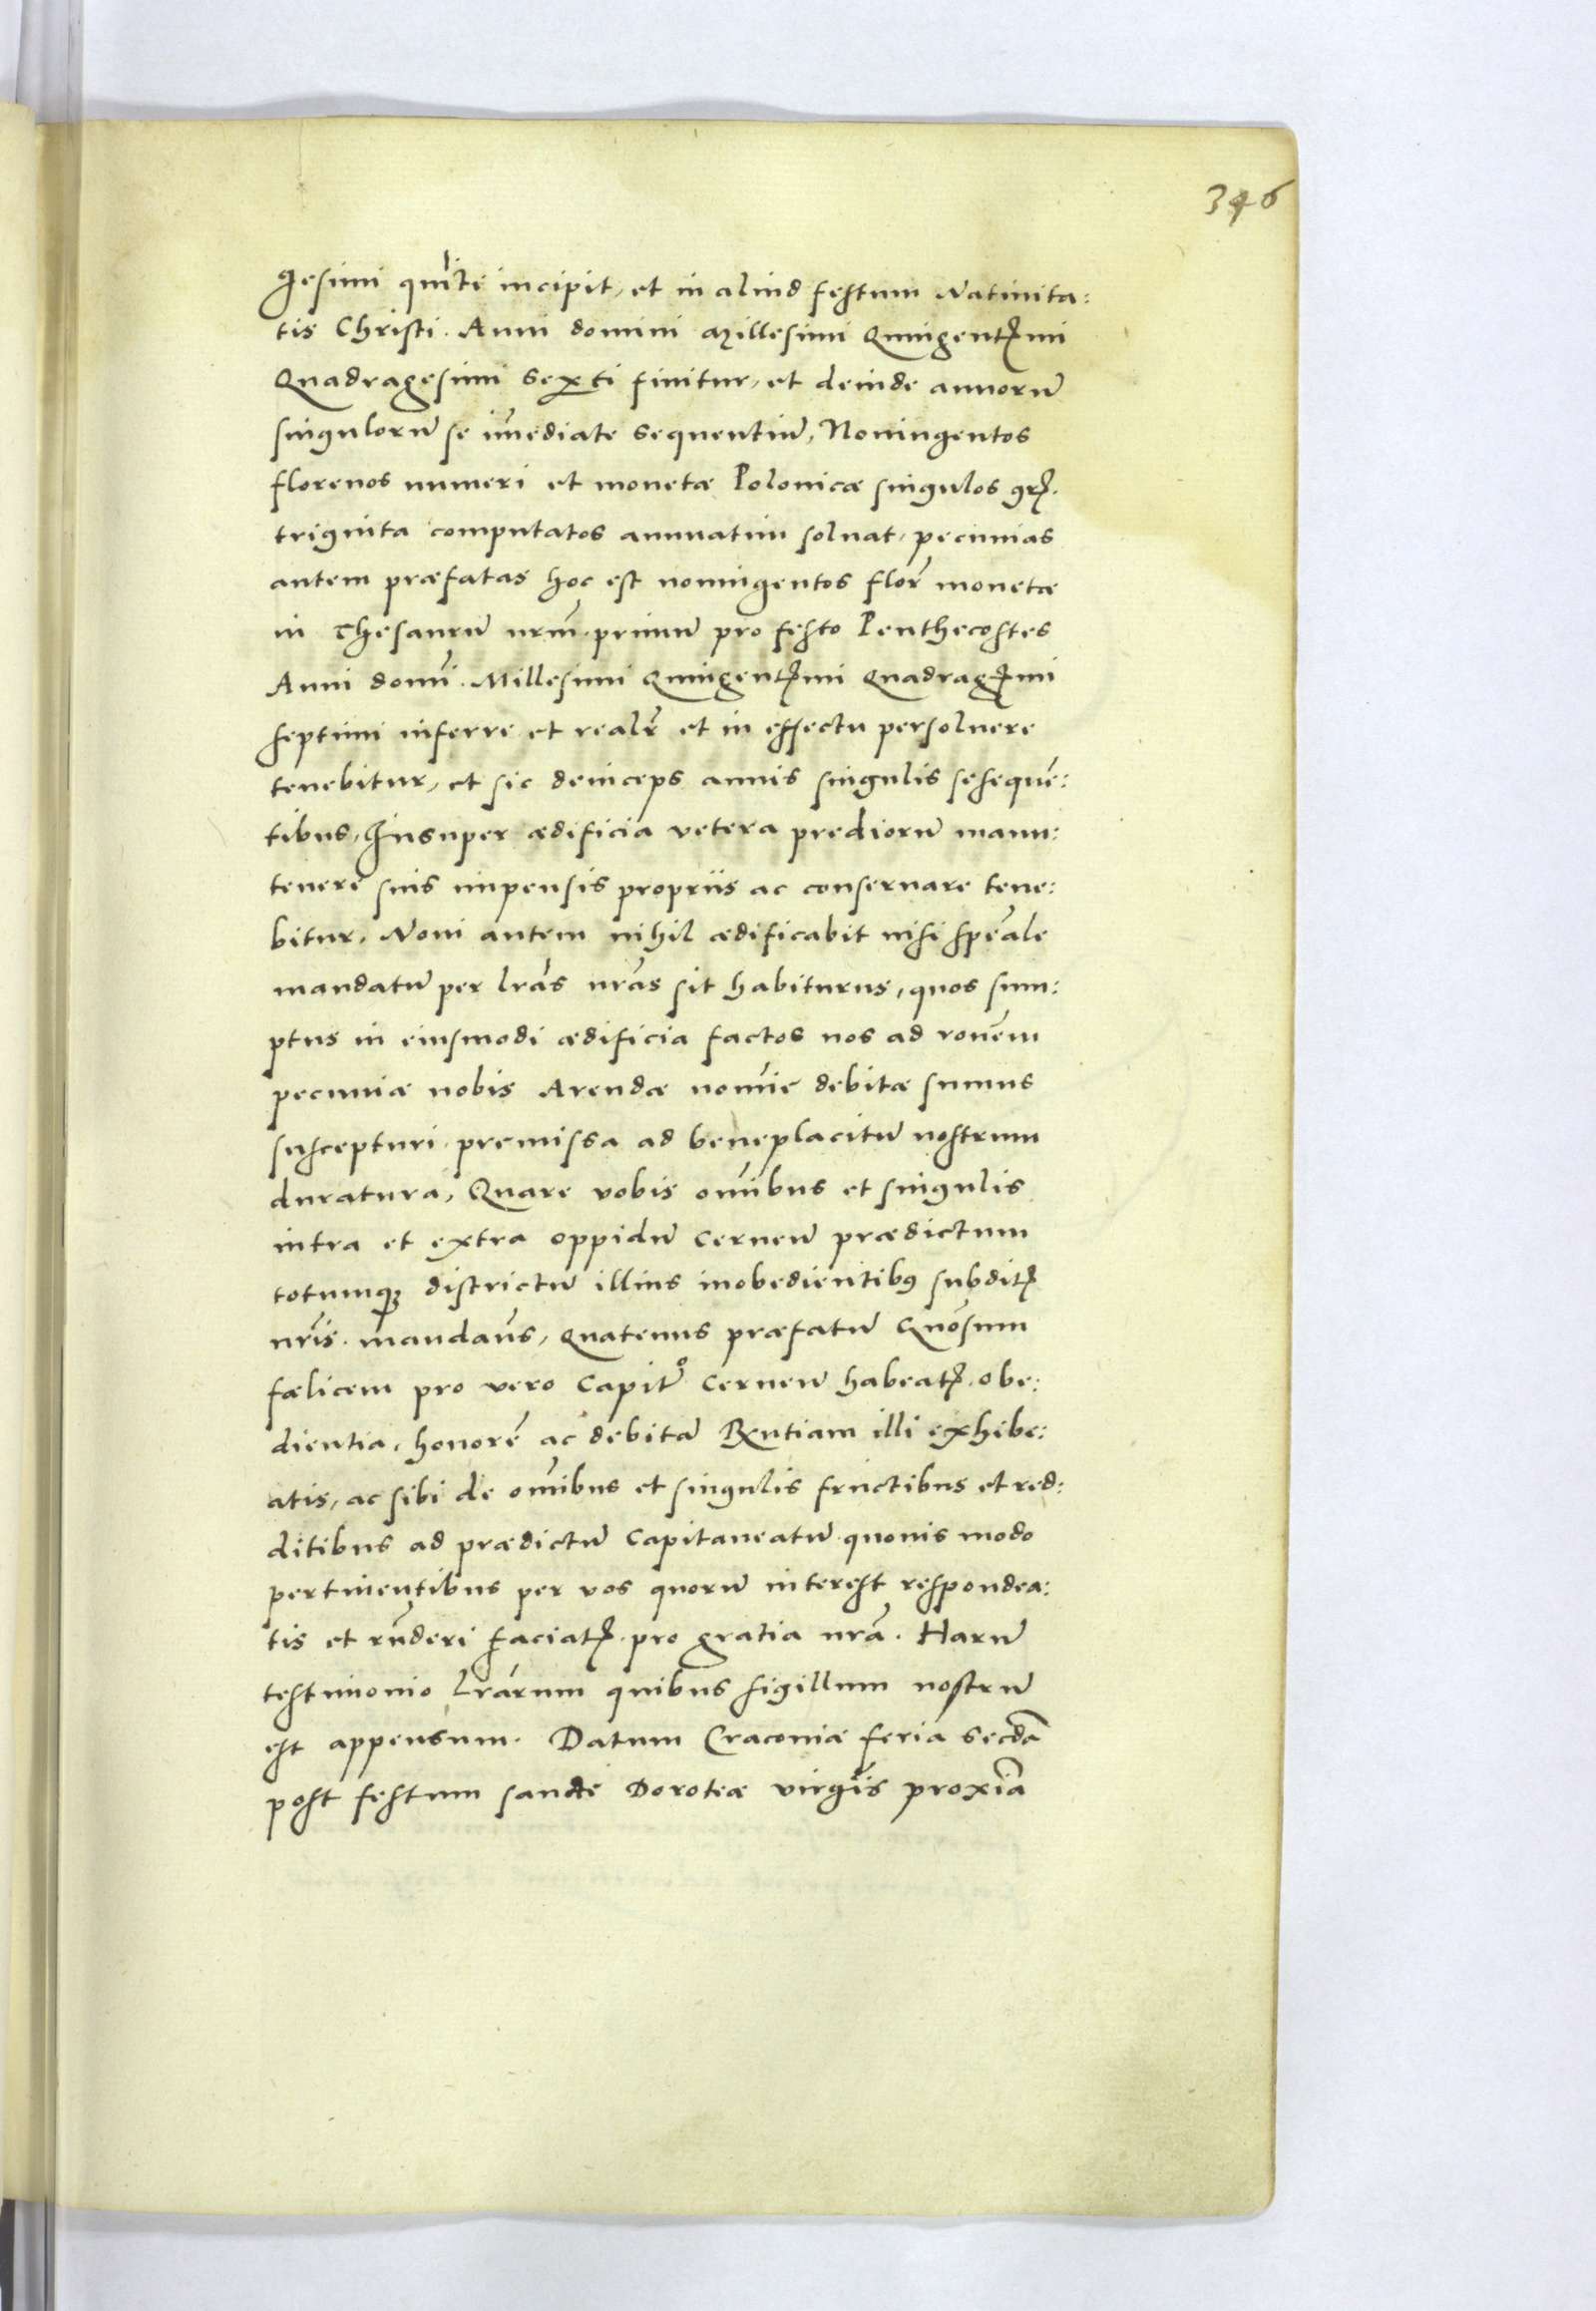 346
gesimi quīti incipit, et in aliud festum Natiuita:
tis Christi. Anni domini Millesimi Quingentꝭmi
Quadragesimi Sexti finitur, et deinde annorū
singulorū se im̄ediate sequentiū, Noningentos
florenos numeri et monetæ Polonicæ singulos grꝭ.
triginta computatos annuatim soluat, pecunias
autem præfatas hoc est noningentos flor̄ monetæ
in Thesaurū nrm̄. primū pro festo Penthecostes
Anni domī. Millesimi Quingentꝭmi Quadragꝭmi
septimi inferre et realr̄ et in effectu persoluere
tenebitur, et sic deinceps annis singulis sesequē:
tibus, Insuper ædificia vetera prediorū manu:
tenere suis impensis propriis ac conseruare tene:
bitur, Noui autem nihil ædificabit nisi spēale
mandatū per lrās nrās sit habiturus, quos sum:
ptus in eiusmodi ædificia factos nos ad ronēm
pecuniæ nobis Arendæ nomīe debitæ sumus
suscepturi. premissa ad beneplacitū nostrum
duratura, Quare vobis om̄ibus et singulis
intra et extra oppidū Cerneū prædictum
totumqꝫ districtū illius inobedientibꝰ subditꝭ
nrīs. mandaūs, quatenus præfatū Gnōsum
fælicem pro vero Capitº Cerneū habeatꝭ. obe:
dientiā, honorē ac debitā Rx̄ntiam illi exhibe:
atis, ac sibi de om̄ibus et singulis fructibus et red:
ditibus ad prædictū Capitaneatū quouis modo
pertinentibus per vos quorū interest respondea:
tis et rn̄deri faciatꝭ. pro gratia nrā. Harū
testimonio Lrārum quibus sigillum nostrū
est appensum. Datum Cracouiæ feria secdā
post festum sancte Doroteæ virgīs proxīa